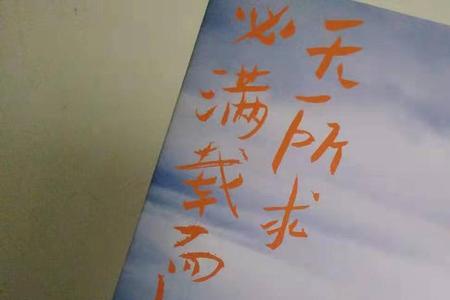 无一所求
必满载而